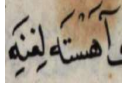 وآهَسْتَه لِفنَيه